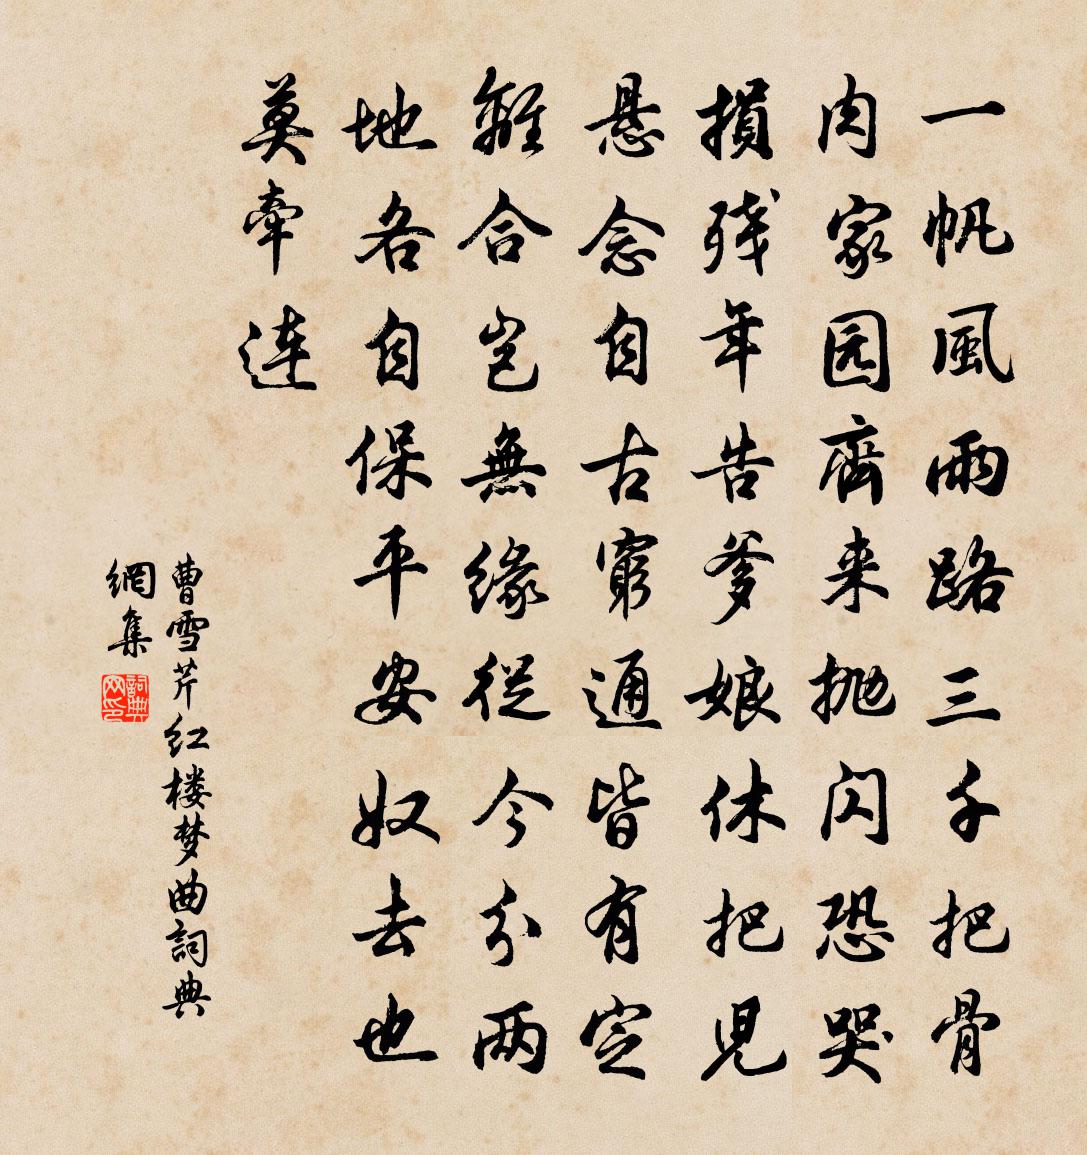 一帆風雨路三千把骨
肉家园齊来抛闪恐哭
損残年告爹娘休把児
悬念自古窮通皆有定
離合岂無缘從今分两
地各自保平安奴去也
莫牽连
曹雪芹红楼梦曲詞典
網集
詞典
网印